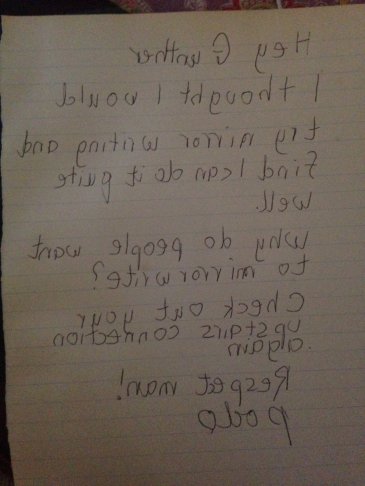 Hey Gunther
I thought I would
try mirror writing and
find I can do it quite
well.
Why do people want
to mirror write?
Check out your
upstairs connection
again.
Respect man!
Podo